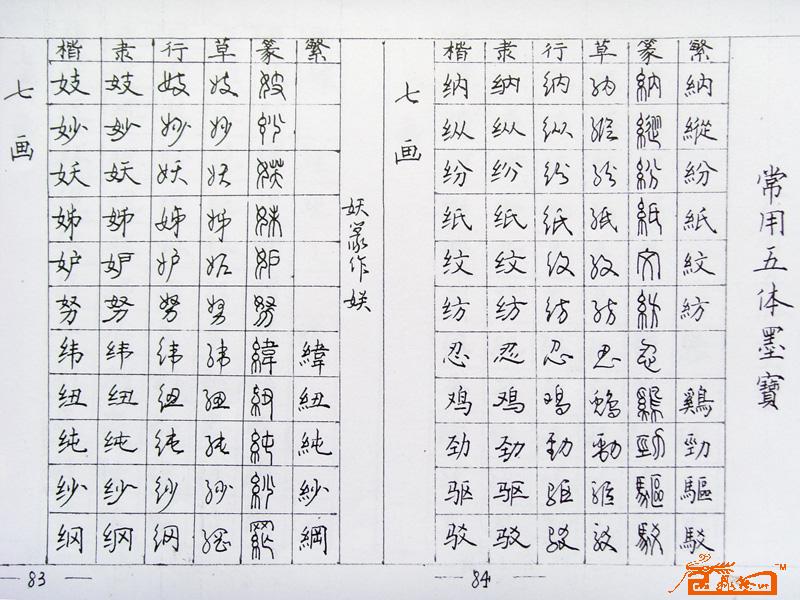 七画
楷 隶 行 草 篆 繁
妓 妓 妓 妓 妓
妙 妙 妙 妙 妙
妖 妖 妖 妖 媄
姊 姊 姊 姊 姊
妒 妒 妒 妒 妒
努 努 努 努 努
纬 纬 纬 纬 緯 緯
纽 纽 纽 纽 紐 紐
纯 纯 纯 纯 純 純
纱 纱 纱 纱 紗 紗
纲 纲 纲 纲 綱
妖篆作媄
83
七画
楷 隶 行 草 篆 繁
纳 纳 纳 纳 納 納
纵 纵 纵 纵 縱 縱
纷 纷 纷 纷 紛 紛
纸 纸 纸 纸 紙 紙
纹 纹 纹 纹 文 紋
纺 纺 纺 纺 紡 紡
忍 忍 忍 忍 忍
鸡 鸡 鸡 鸡 鷄 鷄
劲 劲 劲 劲 勁 勁
驱 驱 驱 驱 驅 驅
驳 驳 驳 驳 駁 駁
84
常用五体墨寶